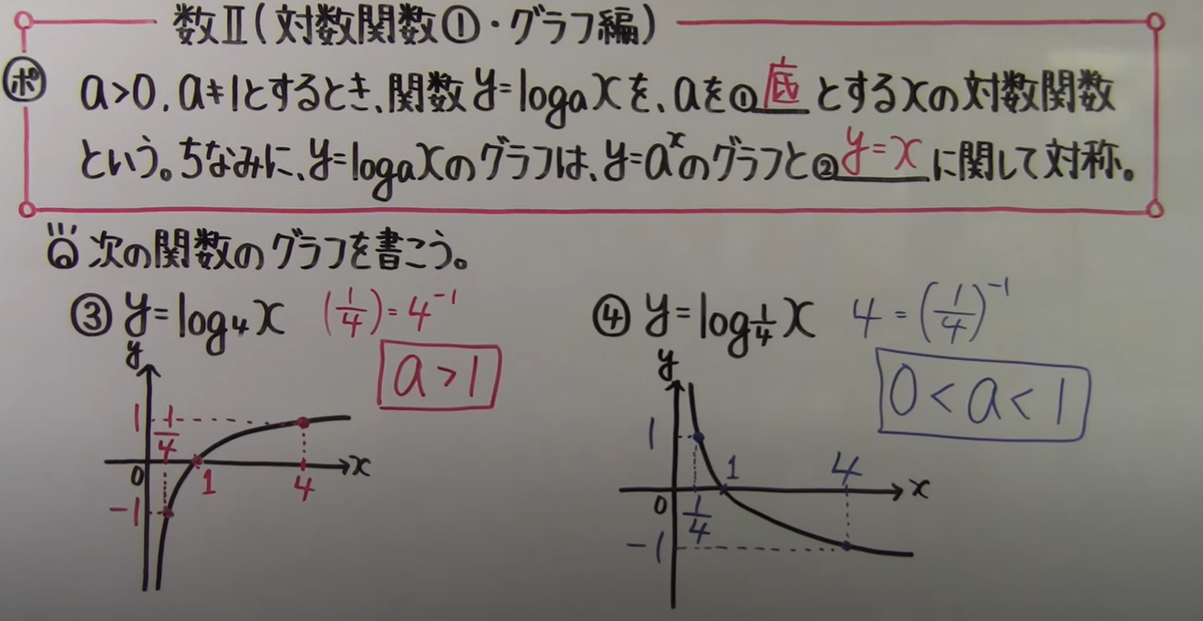 数Ⅱ(対数関数①・グラフ編)
ポ a>0, a≠1とするとき、関数y=logₐxを、aを①底とするxの対数関数
という。ちなみに、y=logₐxのグラフは、y=aˣのグラフと②y=xに関して対称。
Q 次の関数のグラフを書こう。
③ y=log₄x (1/4)=4⁻¹
a>1
y
1
1/4
0
1
4
x
-1
④ y=log1/4 x 4=(1/4)⁻¹
0<a<1
y
1
1
4
x
0
1/4
-1